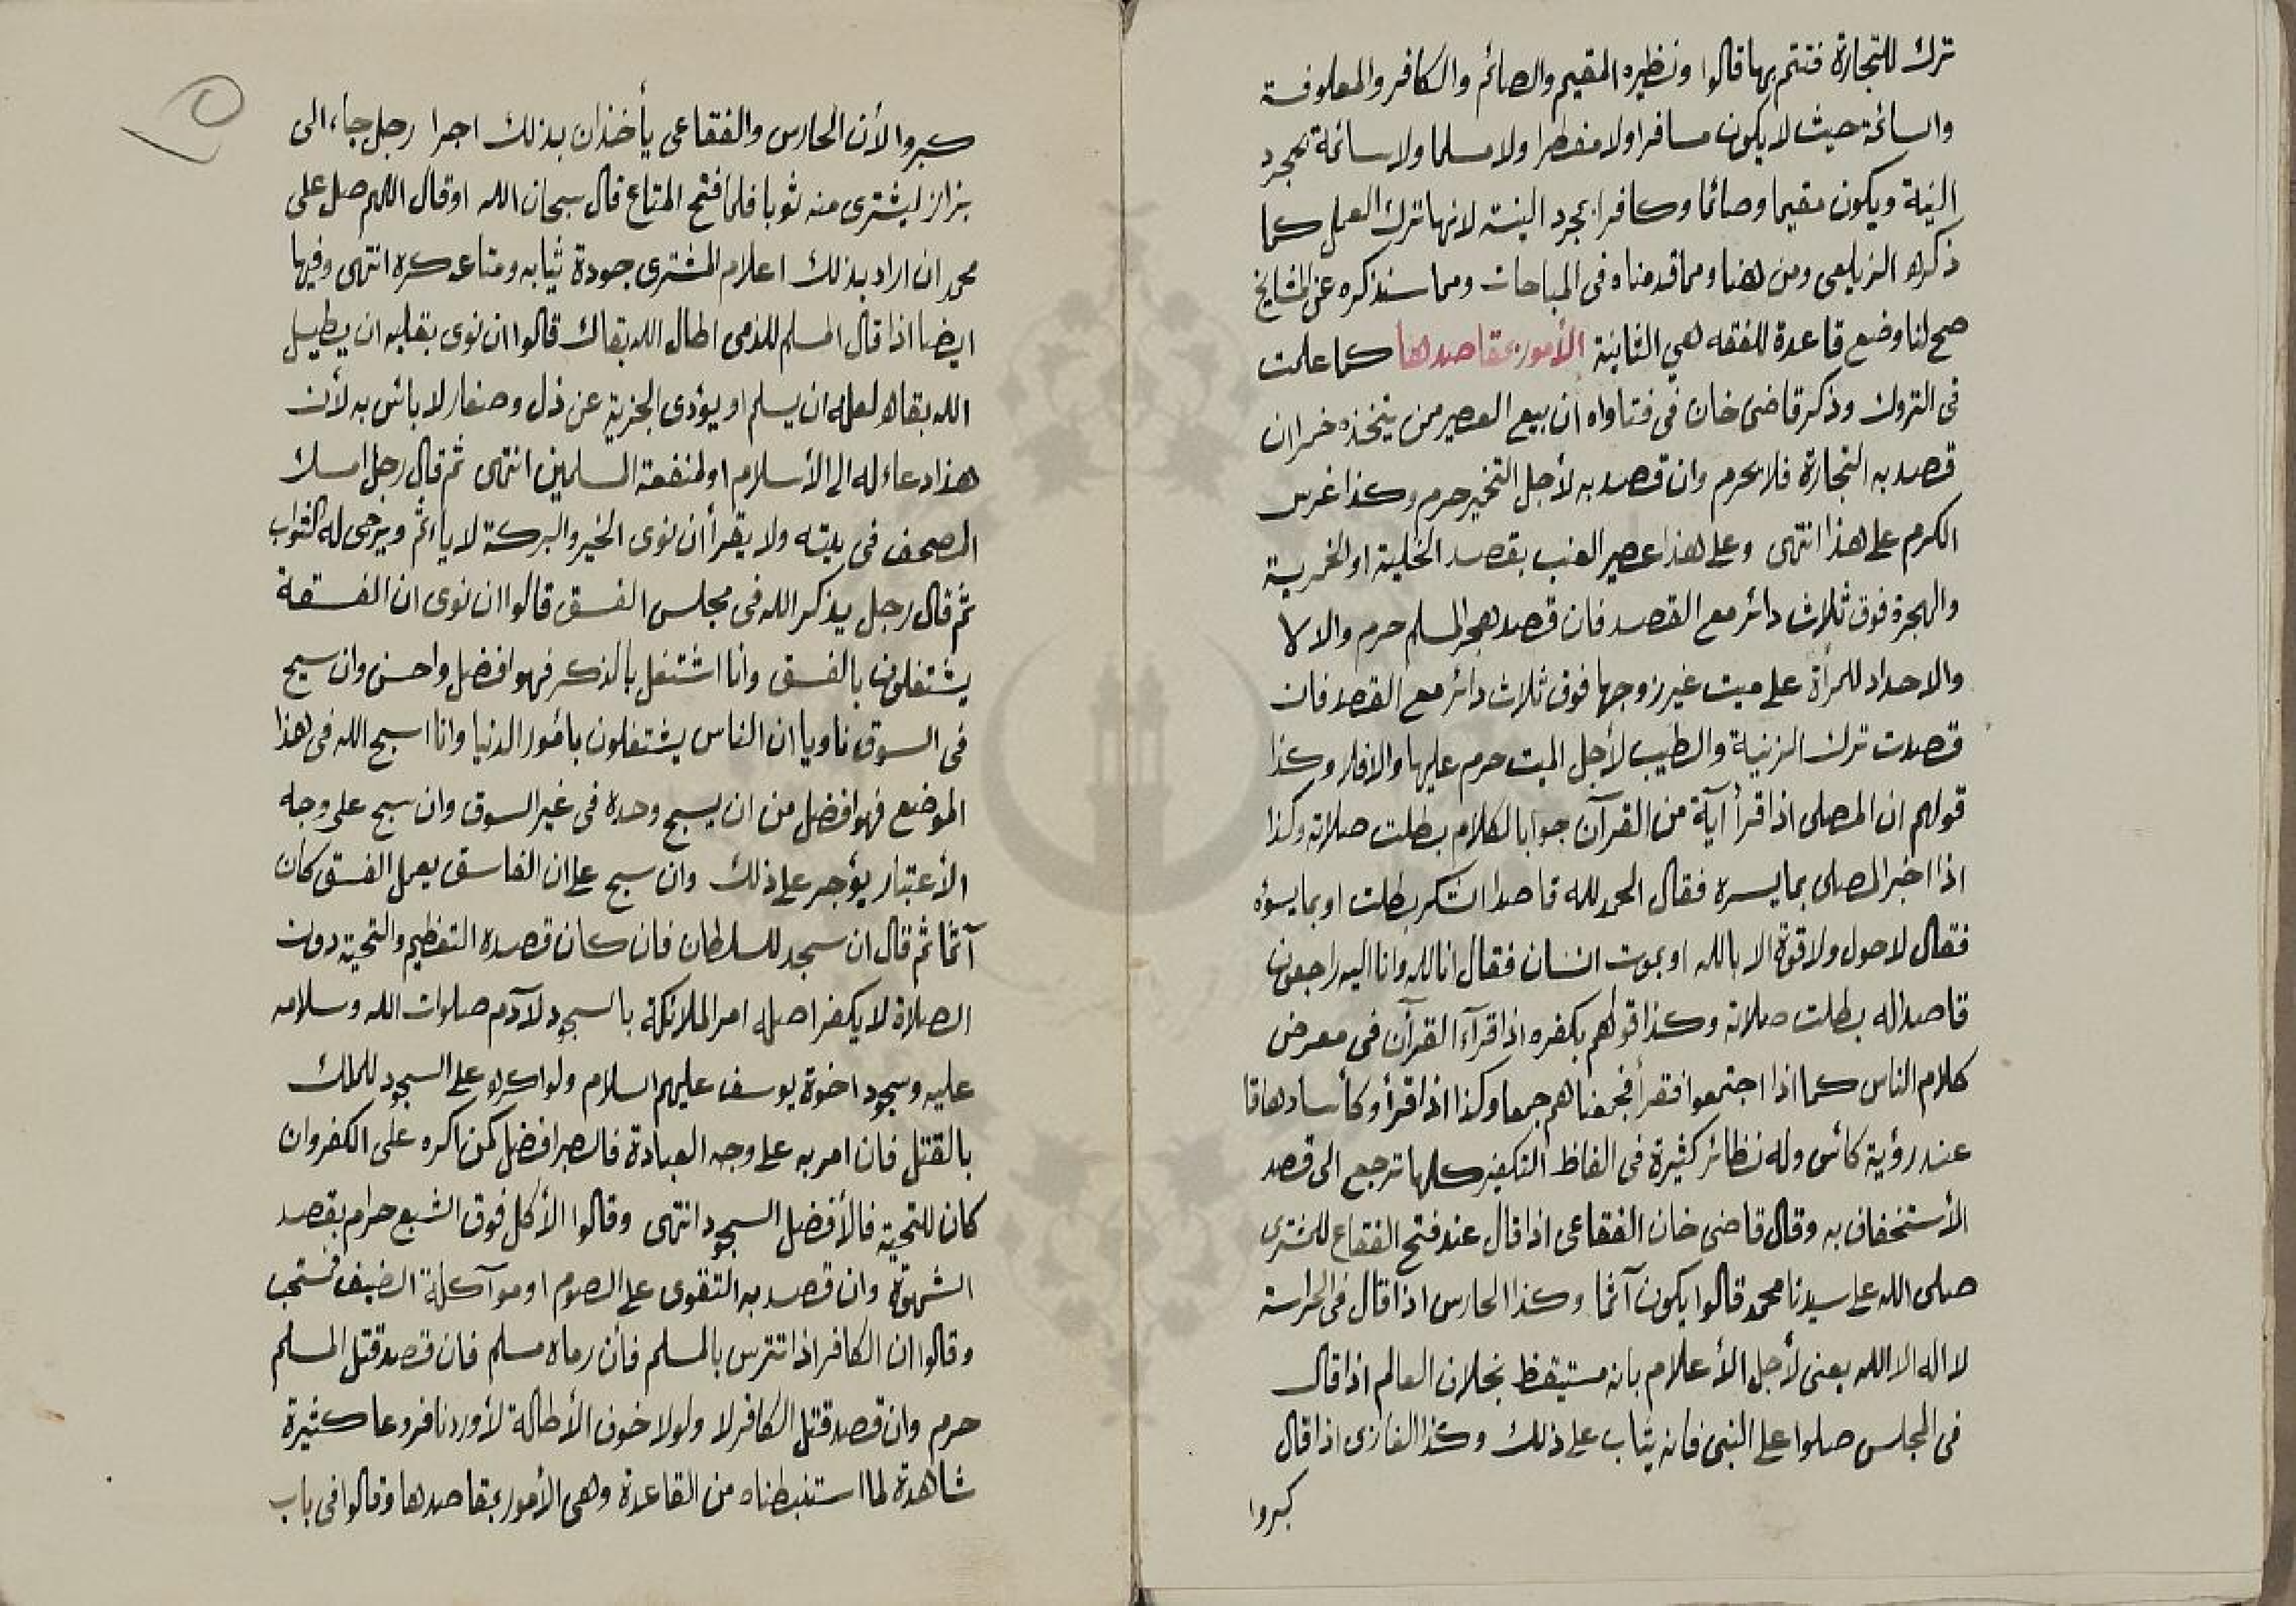 ترك للتجارة فتتم بها قالوا ونظيره المقيم والصائم والكافر والمعلوفة
والسائمة حيث لا يكون مسافرا ولا مفطرا ولا مسلما ولا سائمة بمجرد
النية ويكون مقيما وصائما وكافرا بمجرد النية لانها ترك العمل كما
ذكره الزيلعى ومن هنا ومما قدمناه فى المباحات ومما سنذكره عن المشايخ
صح لنا وضع قاعدة للفقه هي الثانية الأمور بمقاصدها كما علمت
فى التروك وذكر قاضى خان فى فتاواه ان بيع العصير من يتخذه خمرا ان
قصد به التجارة فلا يحرم وان قصد به لأجل التخمير حرم وكذا غرس
الكرم على هذا انتهى وعلى هذا عصير العنب بقصد الخلية او الخمرية
والهجرة فوق ثلاث دائر مع القصد فان قصد هجر المسلم حرم والا لا
والاحداد للمرأة على ميت غير زوجها فوق ثلاث دائر مع القصد فان
قصدت ترك الزينة والطيب لأجل الميت حرم عليها والا فلا وكذا
قولهم ان المصلى اذا قرأ آية من القرآن جوابا لكلام بطلت صلاته وكذا
اذا اخبر المصلى بما يسره فقال الحمد لله قاصدا الشكر بطلت او بما يسؤه
فقال لا حول ولا قوة الا بالله او بموت انسان فقال انا لله وانا اليه راجعون
قاصدا له بطلت صلاته وكذا قولهم بكفره اذا قرآء القرآن فى معرض
كلام الناس كما اذا اجتمعوا فقرأ فجمعناهم جمعا وكذا اذا قرأ وكأسا دهاقا
عند رؤية كائس وله نظائر كثيرة فى الفاظ التكفير كلها ترجع الى قصد
الأستخفاف به وقال قاضى خان الفقاعى اذا قال عند فتح الفقاع للمشترى
صلى الله على سيدنا محمد قالوا يكون آثما وكذا الحارس اذا قال فى الحراسة
لا اله الا الله يعنى لأجل الأعلام بانه مستيقظ بخلاف العالم اذا قال
فى المجلس صلوا على النبى فانه يثاب على ذلك وكذا الغازى اذا قال
كبروا
كبروا لأن الحارس والفقاعى يأخذان بذلك اجرا رجل جاء الى
بزاز ليشترى منه ثوبا فلما فتح المتاع قال سبحان الله او قال اللهم صل على
محمد ان اراد بذلك اعلام المشترى جودة ثيابه ومتاعه كره انتهى وفيها
ايضا اذا قال المسلم للذمى اطال الله بقاك قالوا ان نوى بقلبه ان يطيل
الله بقاه لعله ان يسلم او يؤدى الجزية عن ذل وصغار لا بائس به لأن
هذا دعاء له الى الأسلام او لمنفعة المسلمين انتهى ثم قال رجل امسك
المصحف فى بيته ولا يقرأ ان نوى الخير والبركة لا يأثم ويرجى له الثواب
ثم قال رجل يذكر الله فى مجلس الفسق قالوا ان نوى ان الفسقة
يشتغلون بالفسق وانا اشتغل بالذكر فهو افضل واحسن وان سبح
فى السوق ناويا ان الناس يشتغلون بأمور الدنيا وانا اسبح الله فى هذا
الموضع فهو افضل من ان يسبح وحده فى غير السوق وان سبح على وجه
الأعتبار يؤجر على ذلك وان سبح على ان الفاسق يعمل الفسق كان
آثما ثم قال ان سجد للسلطان فان كان قصده التعظيم والتحية دون
الصلاة لا يكفر اصله امر الملائكة بالسجود لآدم صلوات الله وسلامه
عليه وسجود اخوة يوسف عليهم السلام ولو اكره على السجود للملك
بالقتل فان امر به على وجه العبادة فالصبر افضل كمن اكره على الكفر وان
كان للتحية فالأفضل السجود انتهى وقالوا الأكل فوق الشبع حرام بقصد
الشهوة وان قصد به التقوى على الصوم او موآكلة الضيف فمستحب
وقالوا ان الكافر اذا تترس بالمسلم فأن رماه مسلم فان قصد قتل المسلم
حرم وان قصد قتل الكافر لا ولولا خوف الأطالة لأوردنا فروعا كثيرة
شاهدة لما استنبطناه من القاعدة وهى الأمور بمقاصدها وقالوا فى باب